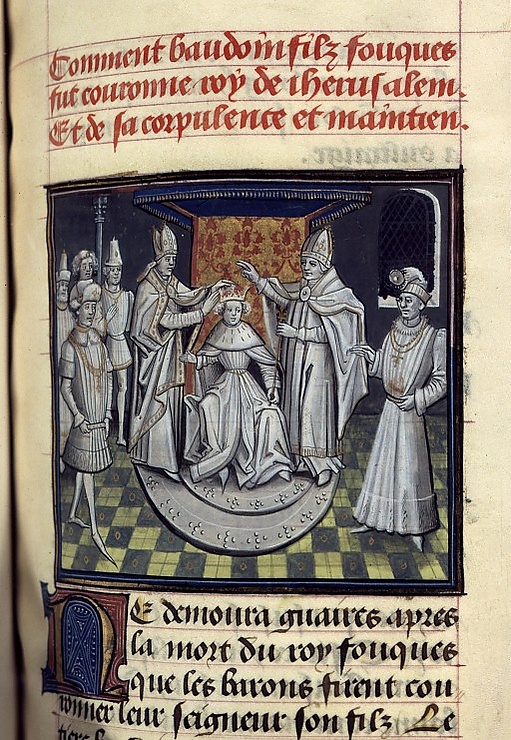 Comment baudoin filz fouques
fut couronne roy de iherusalem.
Et de sa corpulente et maintien.
Ne demoura guaires apres
la mort du roy fouques
que les barons firent cou
ronner leur seigneur son filz Le
tiers